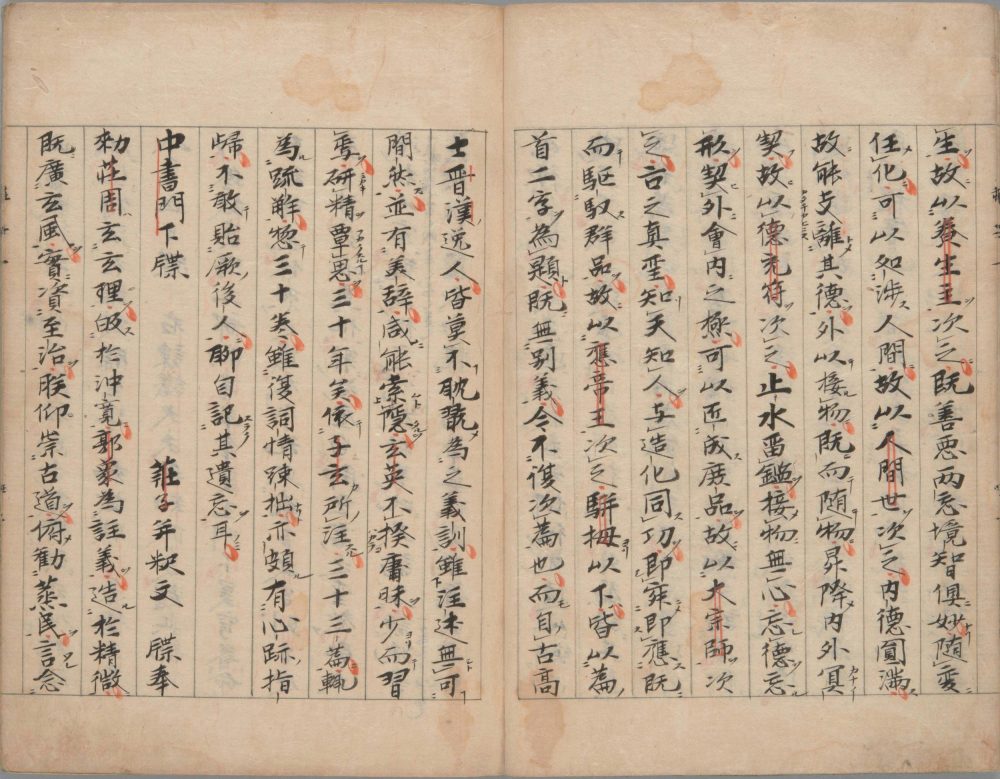 生故以養生主次之既善惡兩忘境智俱妙随変
任化可以処渉人間故以人間世次之内德圓満
故能支離其德外以接物既而随物昇降内外冥
契故以德充符次之止水畄鑑接物無心忘德忘
形契外會内之極可以匠成庶品故以大宗師次
之言之真聖知天知人与造化同功即寂即應既
而駈馭群品故以應帝王次之駢拇以下皆以篇
首二字為題既無別義今不復次篇也而自古高
士晋漢逸人皆莫不耽翫為之義訓雖注述無可
間然並有美辞咸能索隠玄英不揆庸昧少而習
焉研精覃思三十年矣依子玄所注三十三篇輒
為疏解惣三十巻雖復詞情踈拙亦頗有心跡指
歸不敢貽厥後人聊自記其遺忘耳
中書門下牒　荘子并釈文　牒奉
勑荘周玄玄理皈於沖寛郭象為註義造於精微
既廣玄風實資至治朕仰崇古道俯勧蒸民言念